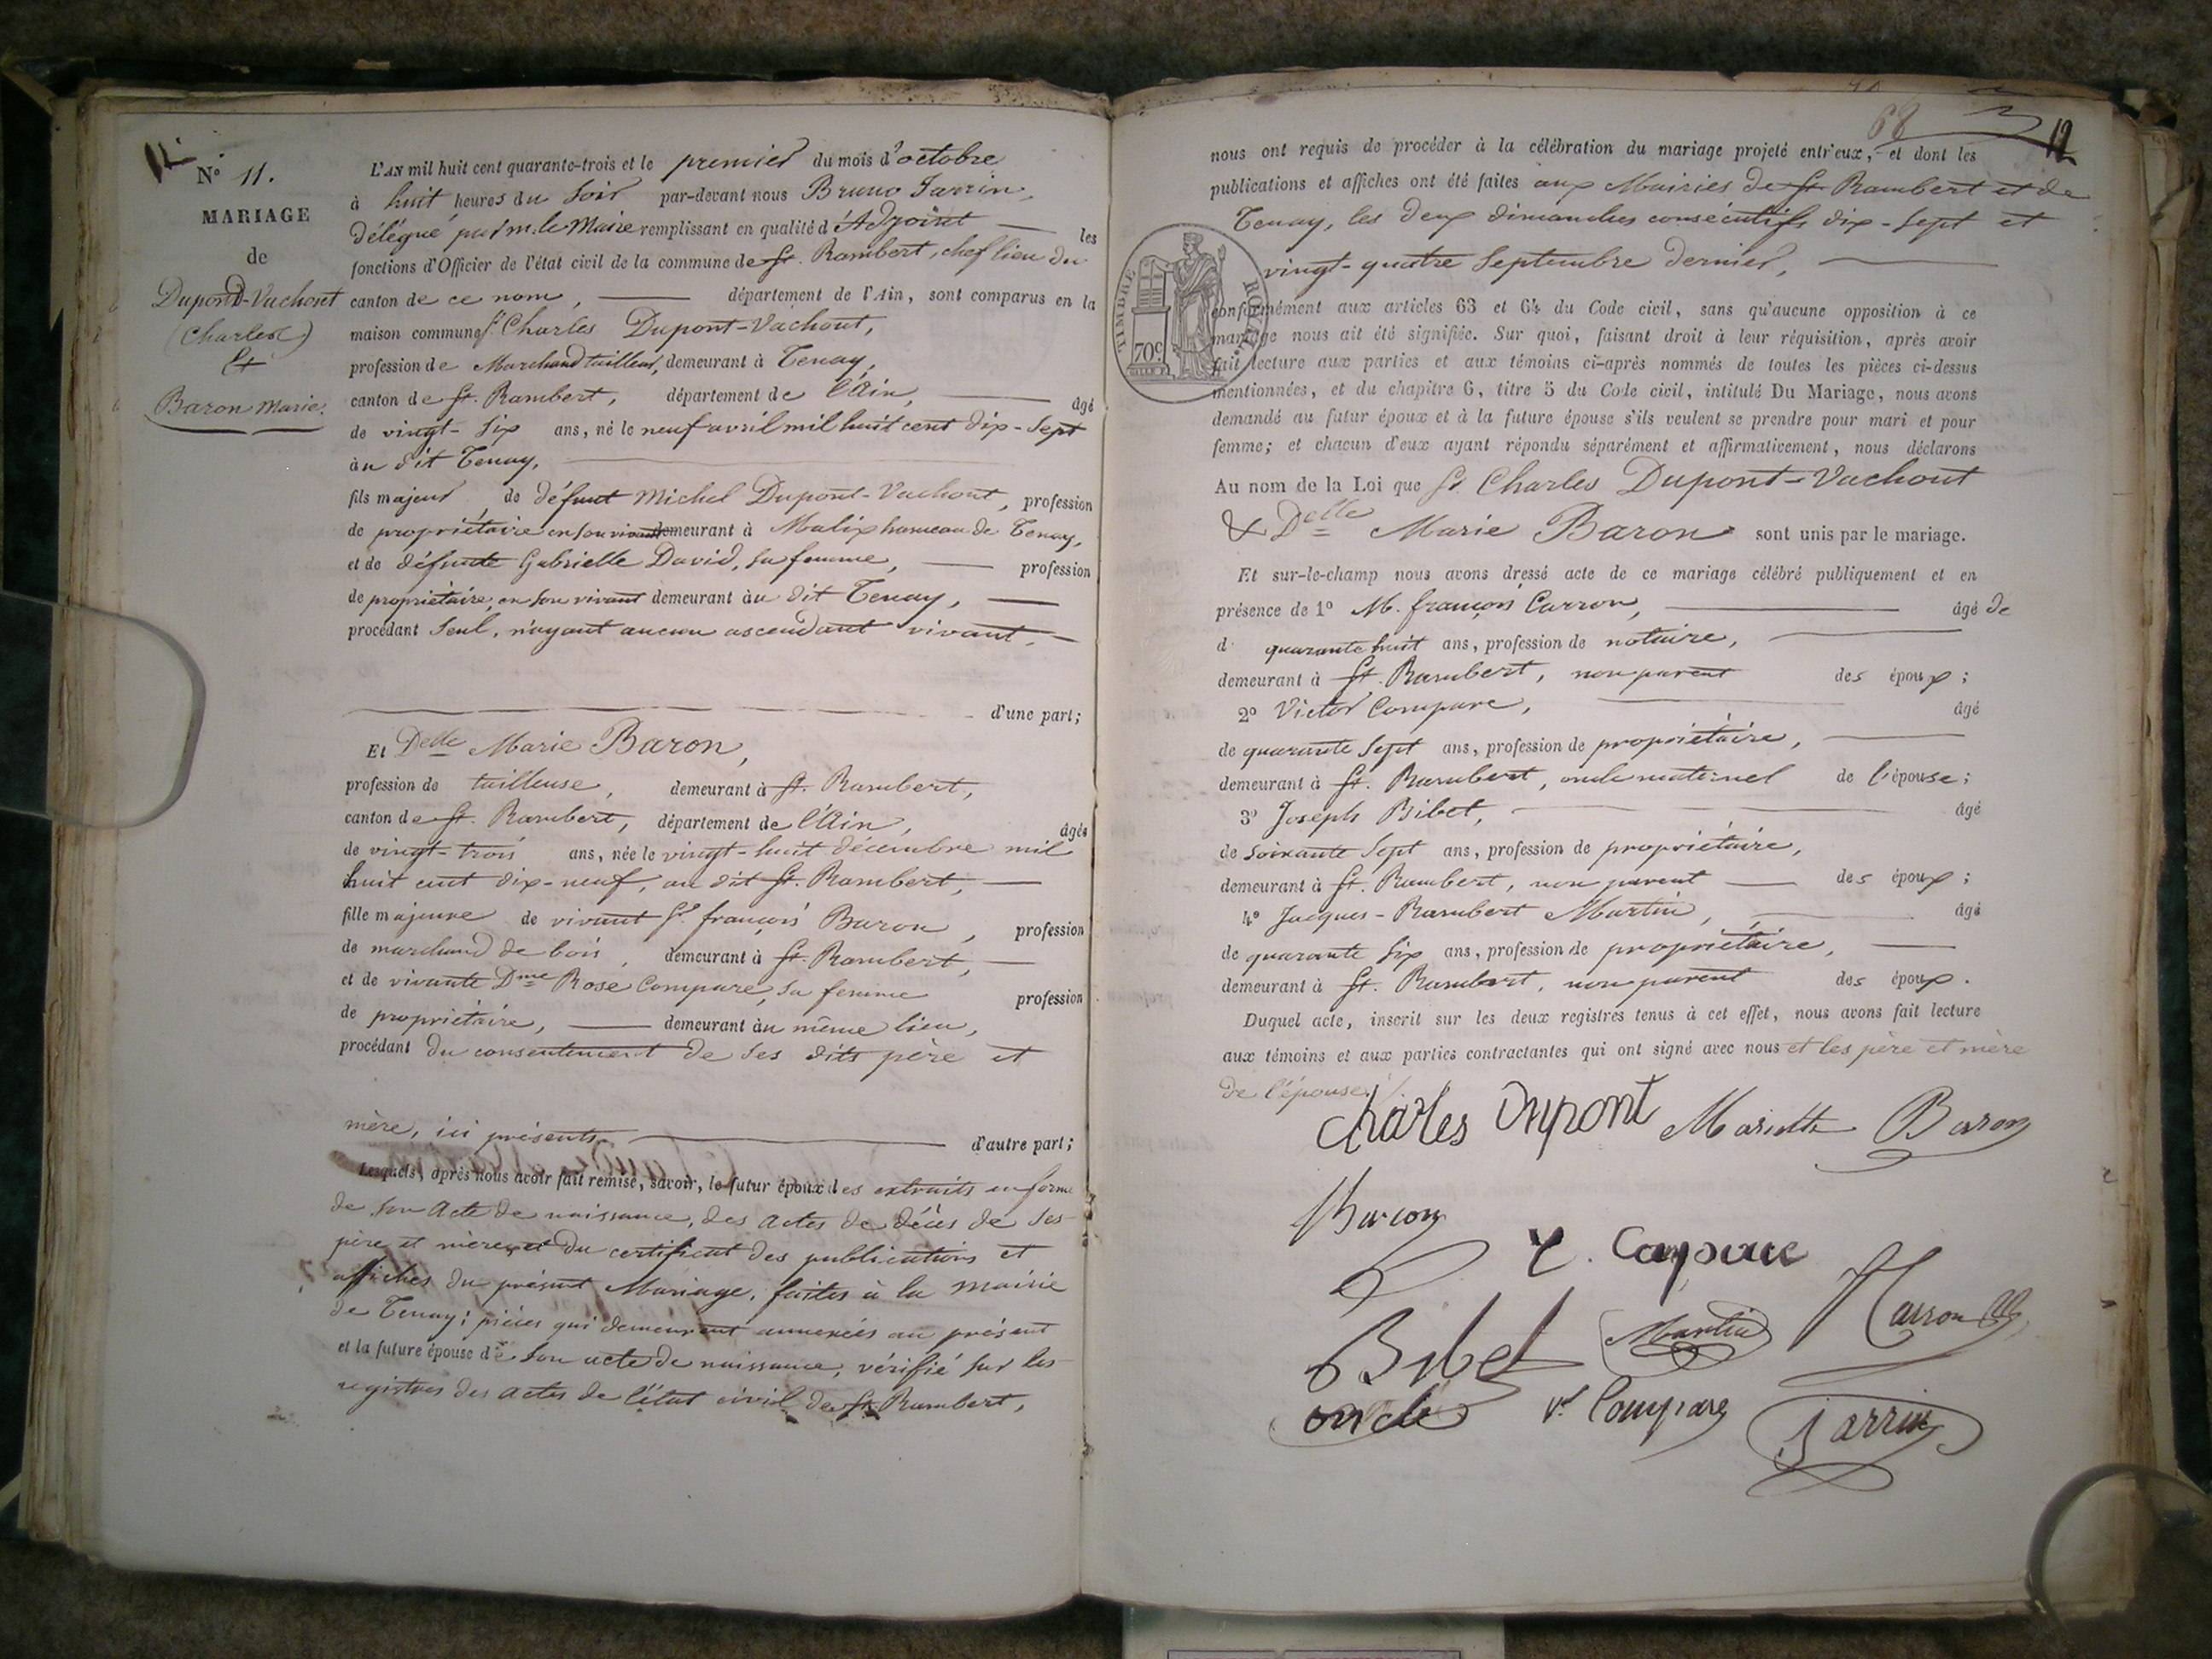 N° 11.
MARIAGE
de
Dupond-Vachout
(Charles)
Et
Baron Marie.
L'AN mil huit cent quarante-trois et le premier du mois d'octobre
à huit heures du soir par-devant nous Bruno Jarrin,
délégué par m. le Maire remplissant en qualité d'Adjoint les
fonctions d'Officier de l'état civil de la commune de St. Rambert, chef lieu du
canton de ce nom, département de l'Ain, sont comparus en la
maison commune Sr. Charles Dupont-Vachout,
profession de Marchand tailleur, demeurant à Tenay,
canton de St. Rambert, département de l'Ain, âgé
de vingt-six ans, né le neuf avril mil huit cent dix-sept
au dit Tenay,
fils majeur de défunt Michel Dupont-Vachout, profession
de propriétaire en son vivant demeurant à Malix hameau de Tenay,
et de défunte Gabrielle David, sa femme, profession
de propriétaire, en son vivant demeurant au dit Tenay,
procédant seul, n'ayant aucun ascendant vivant,
d'une part;
Et Delle Marie Baron,
profession de tailleuse, demeurant à St. Rambert,
canton de St. Rambert, département de l'Ain, âgée
de vingt-trois ans, née le vingt-huit décembre mil
huit cent dix-neuf, au dit St. Rambert,
fille majeure de vivant Sr. françois Baron, profession
de marchand de bois, demeurant à St. Rambert,
et de vivante Dme Rose Compare, sa femme profession
de propriétaire, demeurant au même lieu,
procédant du consentement de ses dits père et
mère, ici présents, d'autre part;
Lesquels, après nous avoir fait remise, savoir, le futur époux des extraits en forme
de son acte de naissance, des actes de décès de ses
père et mère, et du certificat des publications et
affiches du présent Mariage, faites à la mairie
de Tenay; pièces qui demeurent annexées au présent
et la future épouse de son acte de naissance, vérifié sur les
registres des actes de l'état civil de St. Rambert,
68
12
nous ont requis de procéder à la célébration du mariage projeté entr'eux, et dont les
publications et affiches ont été faites aux Mairies de St. Rambert et de
Tenay, les deux dimanches consécutifs dix-sept et
vingt-quatre Septembre dernier,
TIMBRE ROYAL
70c
conformément aux articles 63 et 64 du Code civil, sans qu'aucune opposition à ce
mariage nous ait été signifiée. Sur quoi, faisant droit à leur réquisition, après avoir
fait lecture aux parties et aux témoins ci-après nommés de toutes les pièces ci-dessus
mentionnées, et du chapitre 6, titre 5 du Code civil, intitulé Du Mariage, nous avons
demandé au futur époux et à la future épouse s'ils veulent se prendre pour mari et pour
femme; et chacun d'eux ayant répondu séparément et affirmativement, nous déclarons
Au nom de la Loi que Sr. Charles Dupont-Vachout
& Delle Marie Baron sont unis par le mariage.
Et sur-le-champ nous avons dressé acte de ce mariage célébré publiquement et en
présence de 1° M. françois Carron, âgé de
d quarante huit ans, profession de notaire,
demeurant à St. Rambert, non parent des époux;
2° Victor Compare, âgé
de quarante sept ans, profession de propriétaire,
demeurant à St. Rambert, oncle maternel de l'épouse;
3° Joseph Bibet, âgé
de soixante sept ans, profession de propriétaire,
demeurant à St. Rambert, non parent des époux;
4° Jacques-Rambert Martin, âgé
de quarante six ans, profession de propriétaire,
demeurant à St. Rambert, non parent des époux.
Duquel acte, inscrit sur les deux registres tenus à cet effet, nous avons fait lecture
aux témoins et aux parties contractantes qui ont signé avec nous et les père et mère
de l'épouse.
charles Dupont Mariette Baron
Baron
Bibet Martin Carron
oncle vr Compare Jarrin